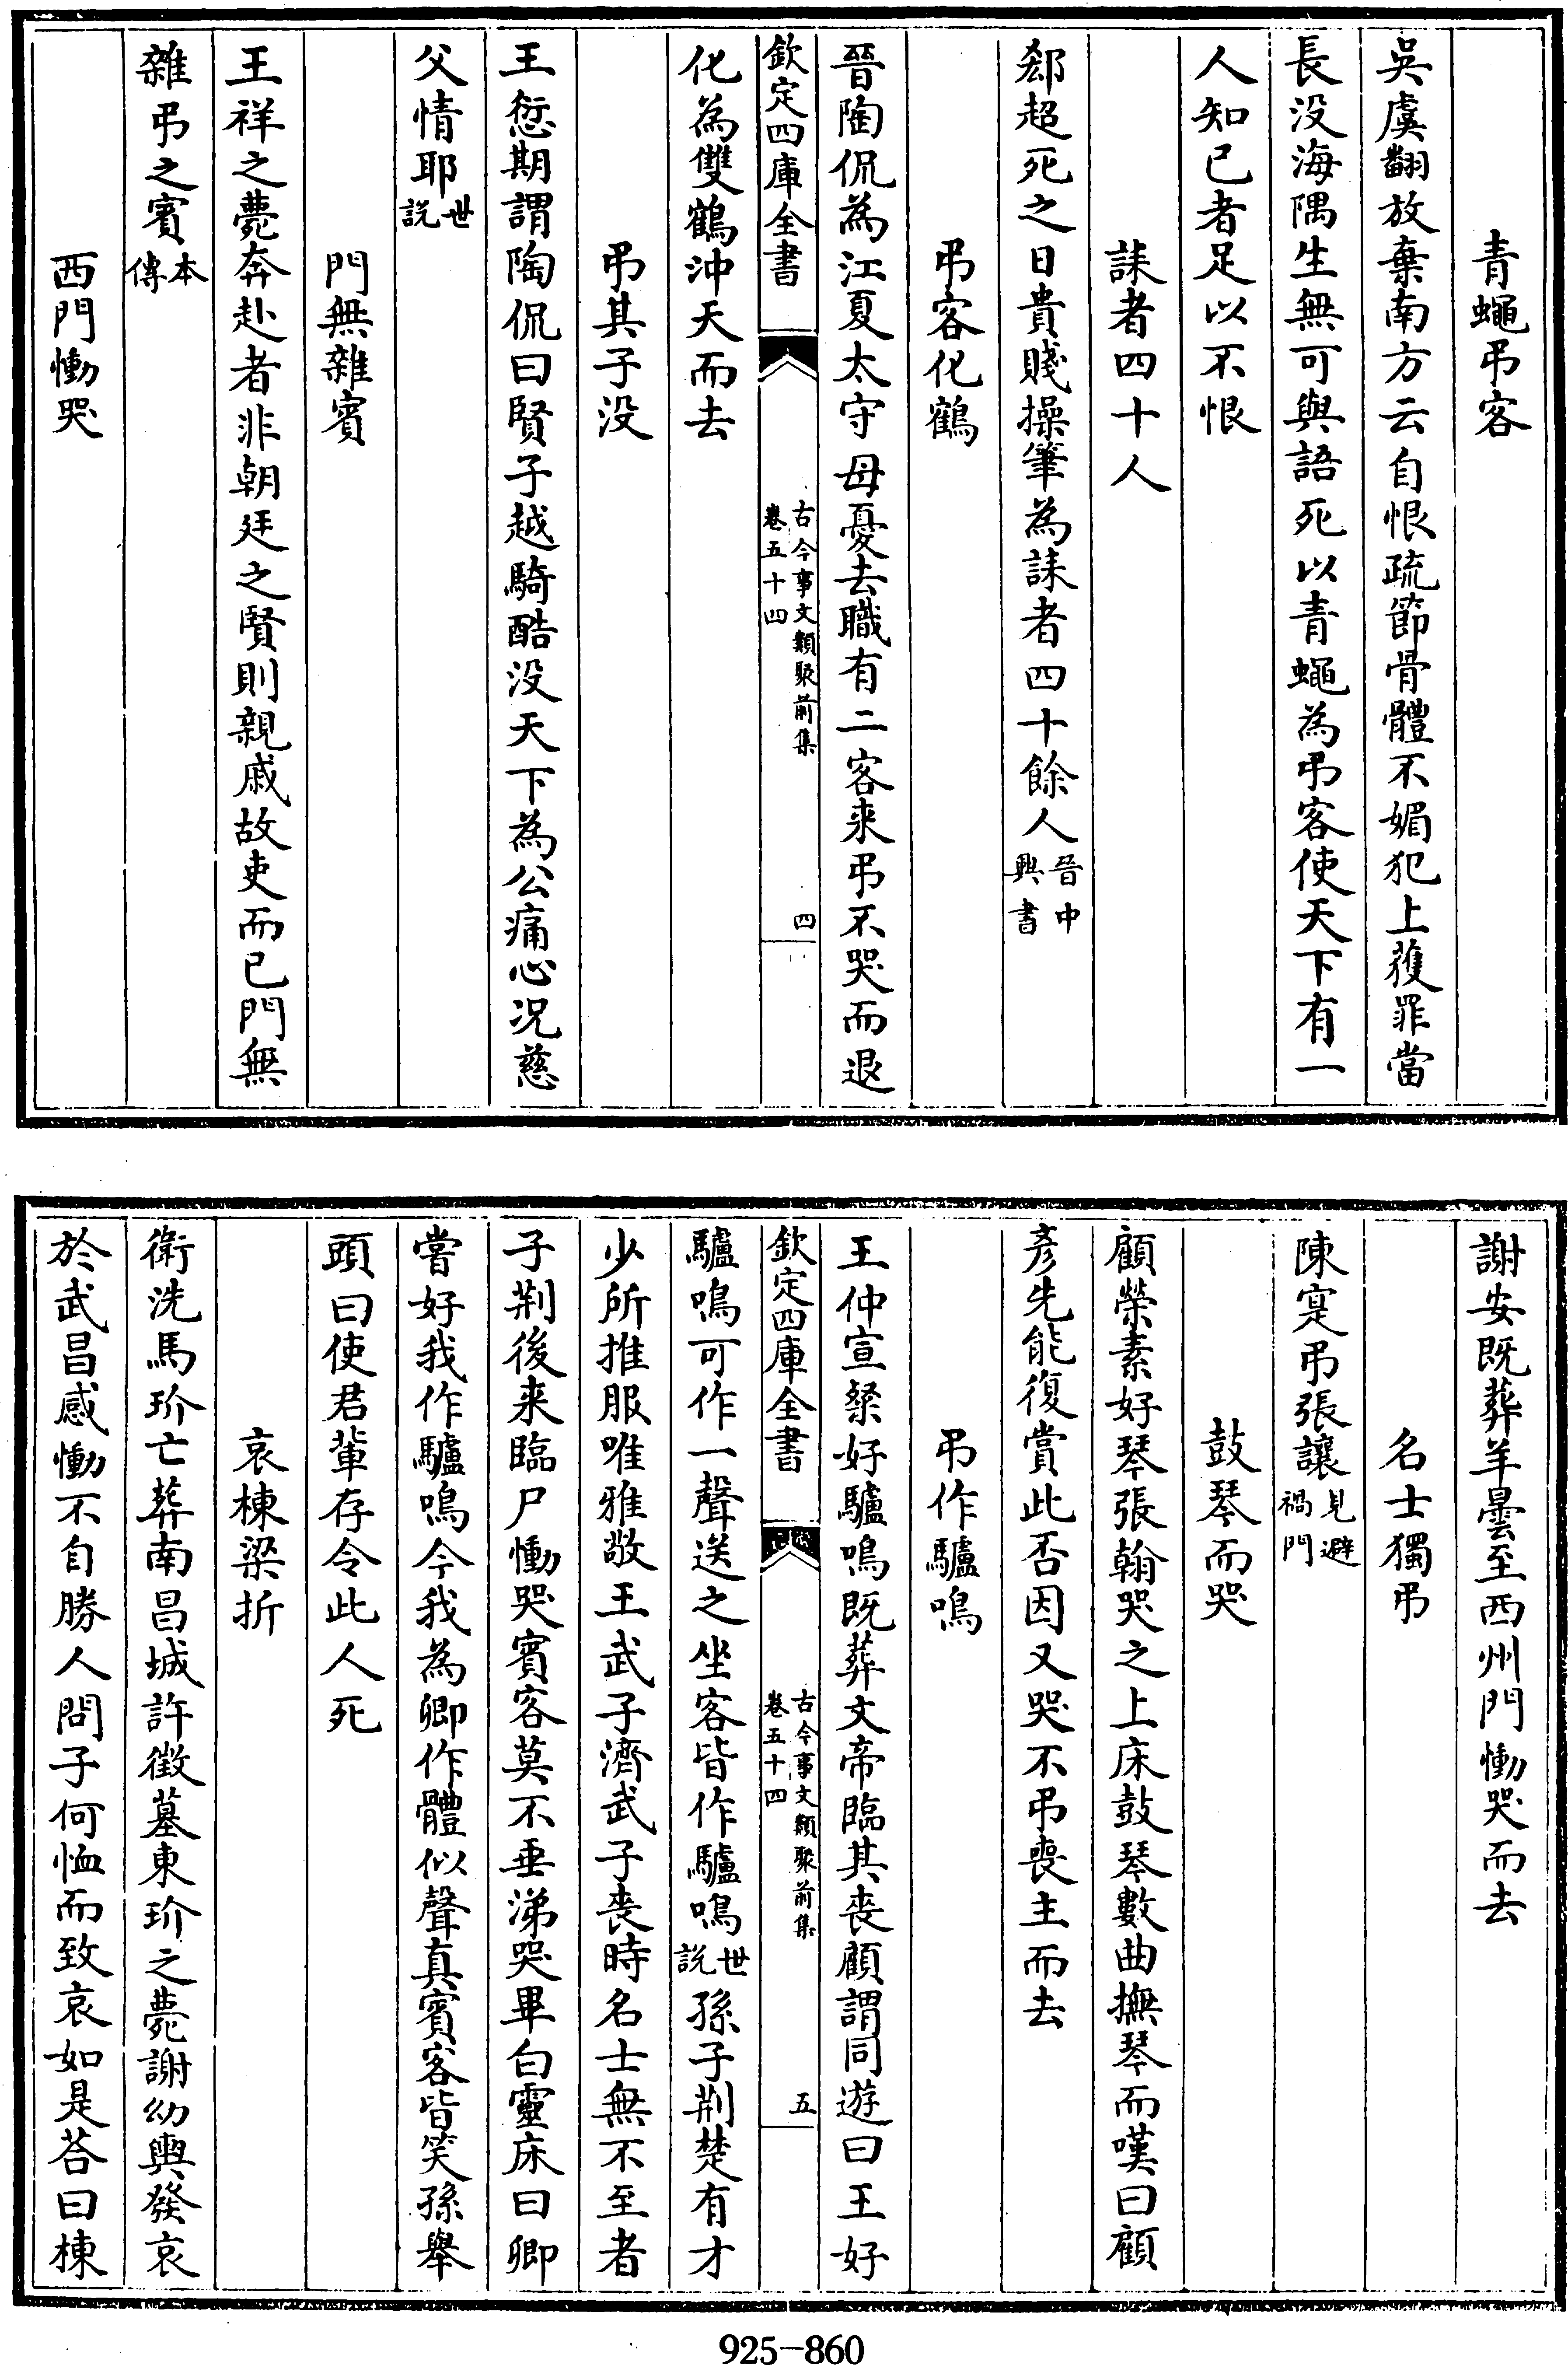 青蠅弔客
吳虞翻放棄南方云自恨疏節骨體不媚犯上獲罪當
長没海隅生無可與語死以青蠅為弔客使天下有一
人知已者足以不恨
誄者四十人
郄超死之日貴賤操筆為誄者四十餘人晉中興書
弔客化鶴
晉陶侃為江夏太守母憂去職有二客来弔不哭而退
欽定四庫全書 古今事文類聚前集 卷五十四 四
化為雙鶴沖天而去
弔其子没
王愆期謂陶侃曰賢子越騎酷没天下為公痛心况慈
父情耶世説
門無雜賓
王祥之薨奔赴者非朝廷之賢則親戚故吏而已門無
雜弔之賓本傳
西門慟哭
謝安既葬羊曇至西州門慟哭而去
名士獨弔
陳寔弔張讓見避禍門
鼓琴而哭
顧榮素好琴張翰哭之上床鼓琴數曲撫琴而嘆曰顧
彦先能復賞此否因又哭不弔喪主而去
弔作驢鳴
王仲宣粲好驢鳴既葬文帝臨其喪顧謂同遊曰王好
欽定四庫全書 古今事文類聚前集 卷五十四 五
驢鳴可作一聲送之坐客皆作驢鳴世説孫子荆楚有才
少所推服唯雅敬王武子濟武子喪時名士無不至者
子荆後来臨尸慟哭賓客莫不垂涕哭畢白靈床曰卿
嘗好我作驢鳴今我為卿作體似聲真賓客皆笑孫舉
頭曰使君輩存令此人死
哀棟梁折
衛洗馬玠亡葬南昌城許徵墓東玠之薨謝幼輿發哀
於武昌感慟不自勝人問子何恤而致哀如是荅曰棟
925-860